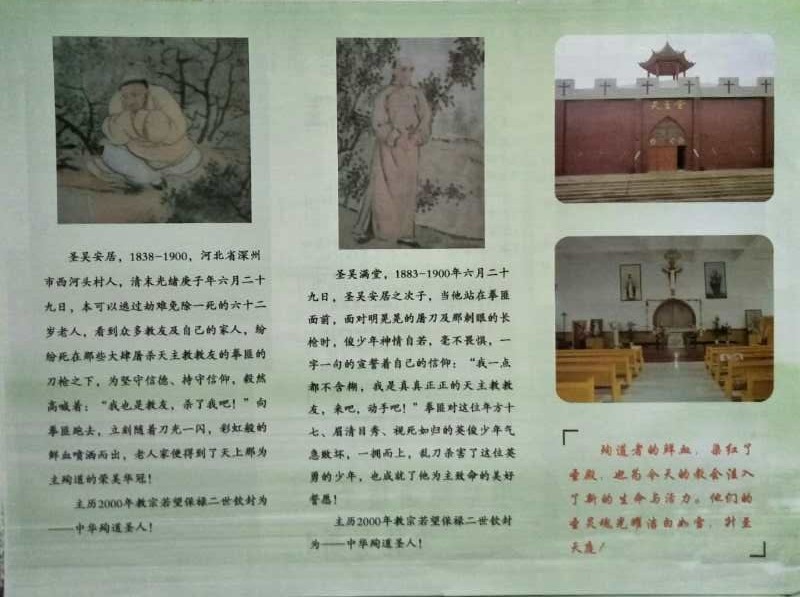 圣吴安居，1838-1900，河北省深州
市西河头村人，清末光绪庚子年六月二十
九日，本可以逃过劫难免除一死的六十二
岁老人，看到众多教友及自己的家人，纷
纷死在那些大肆屠杀天主教教友的拳匪的
刀枪之下，为坚守信德、持守信仰，毅然
高喊着：“我也是教友，杀了我吧！”向
拳匪跑去，立刻随着刀光一闪，彩虹般的
鲜血喷洒而出，老人家便得到了天上那为
主殉道的荣美华冠！
主历2000年教宗若望保禄二世钦封为
——中华殉道圣人！
圣吴满堂，1883-1900年六月二十
九日，圣吴安居之次子，当他站在拳匪
面前，面对明晃晃的屠刀及那刺眼的长
枪时，俊少年神情自若，毫不畏惧，一
字一句的宣誓着自己的信仰：“我一点
都不含糊，我是真真正正的天主教教
友，来吧，动手吧！”拳匪对这位年方十
七、眉清目秀、视死如归的英俊少年气
急败坏，一拥而上，乱刀杀害了这位英
勇的少年，也成就了他为主致命的美好
誓愿！
主历2000年教宗若望保禄二世钦封
为——中华殉道圣人！
天主堂
殉道者的鲜血，染红了
圣殿，也为今天的教会注入
了新的生命与活力。他们的
圣灵魂光耀洁白如雪，升至
天庭！